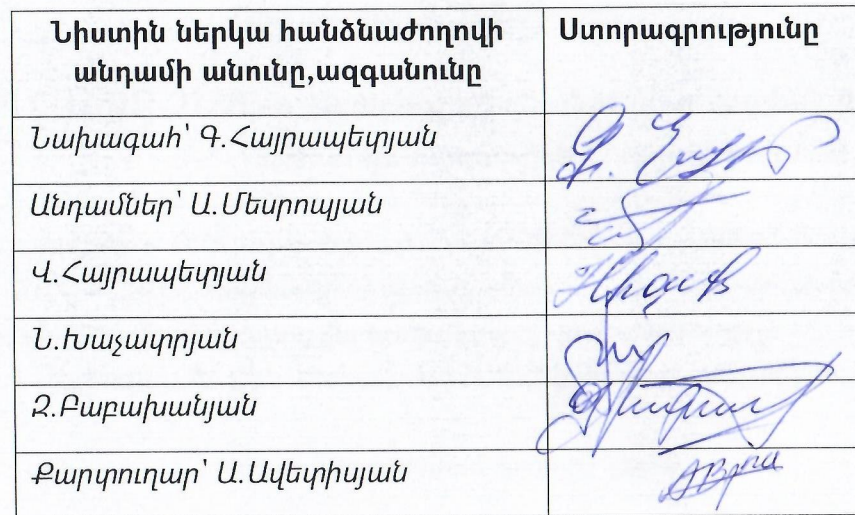 Նիստին ներկա հանձնաժողովի
անդամի անունը,ազգանունը
Ստորագրությունը
Նախագահ՝ Գ.Հայրապետյան
Անդամներ՝ Ա.Մեսրոպյան
Վ.Հայրապետյան
Ն.Խաչատրյան
Զ.Բաբախանյան
Քարտուղար՝ Ա.Ավետիսյան